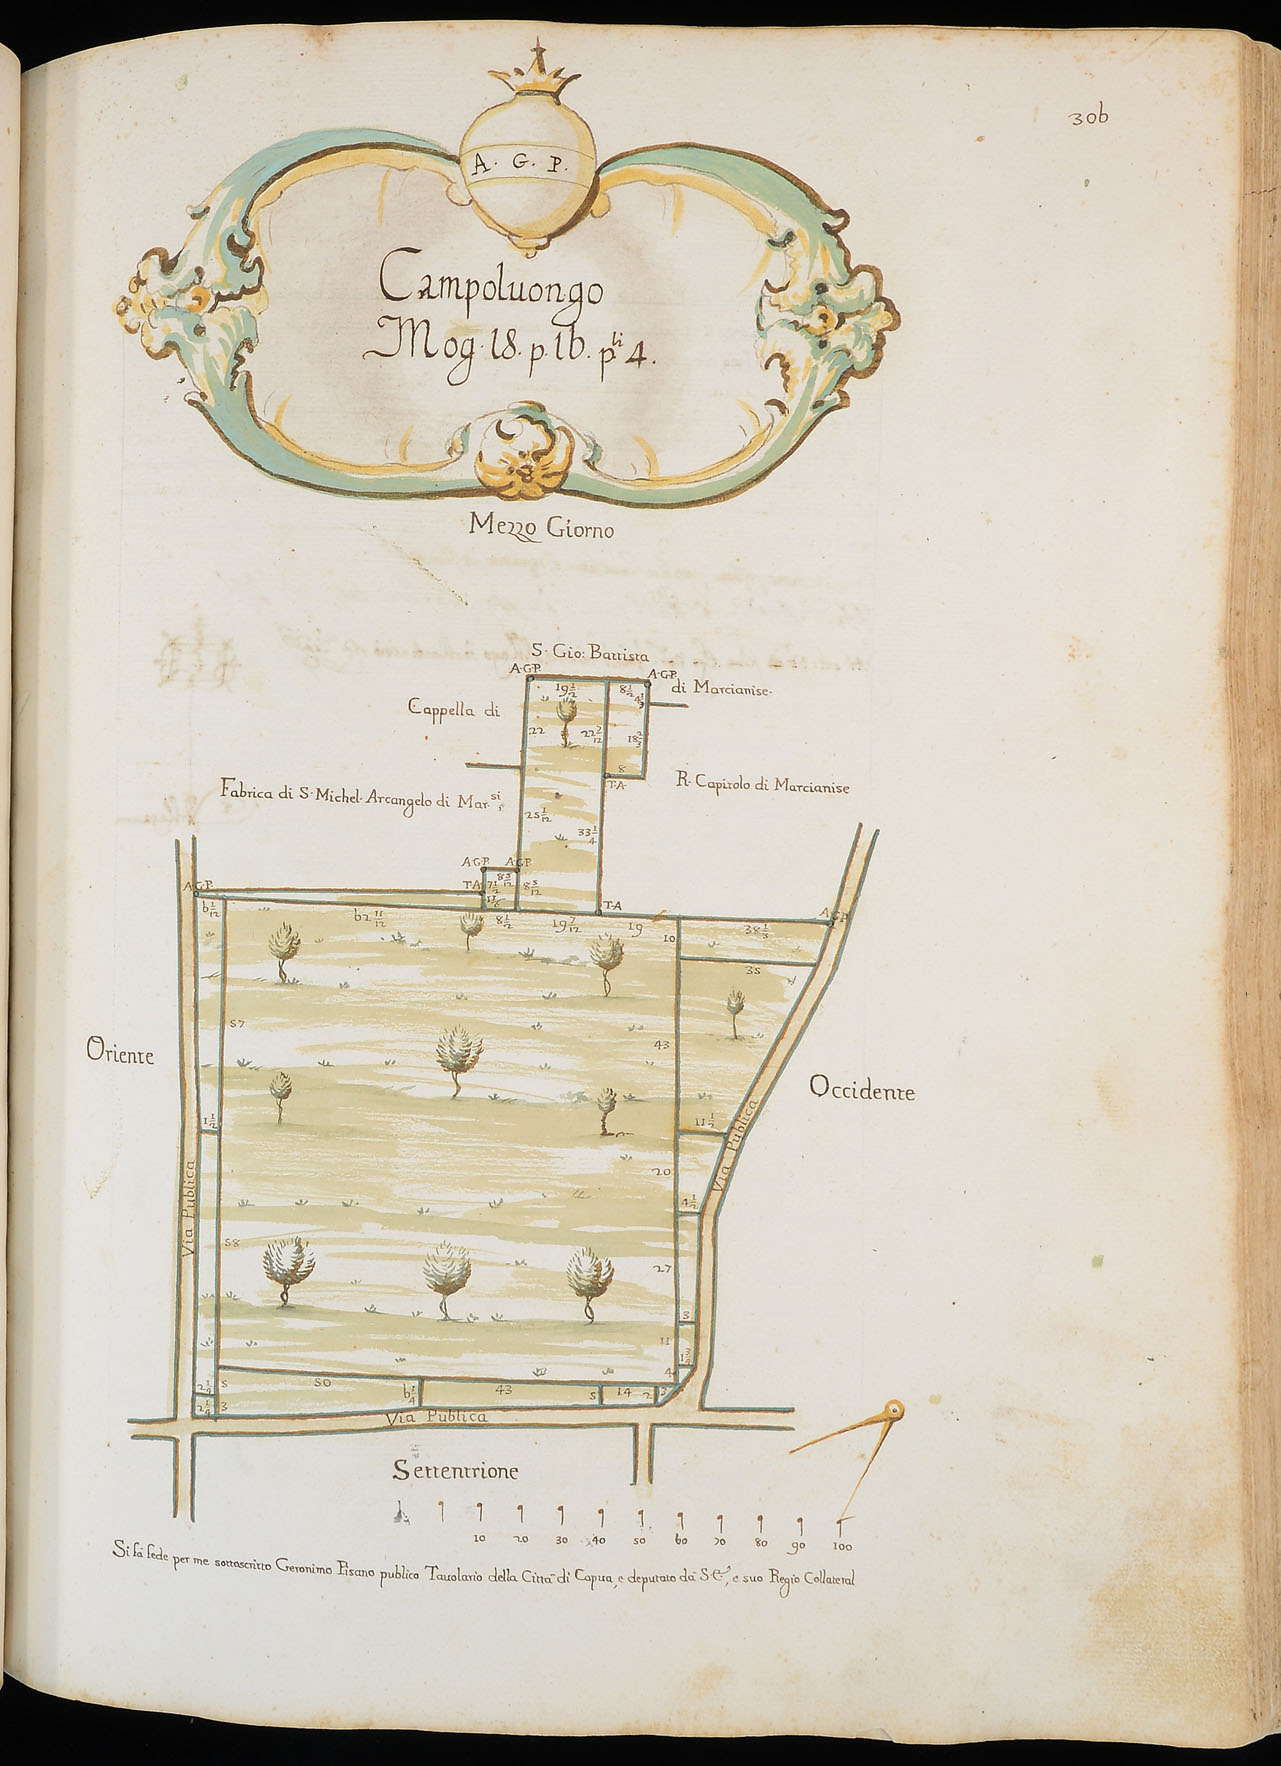 30b
A. G. P.
Campoluongo
Mog. 18. p. 1b. p.ti 4.
Mezzo Giorno
S. Gio: Battista
A.G.P.
A.G.P.
di Marcianise.
19 1/2
8 1/2
4 1/3
Cappella di
22
22 2/12
18 2/3
8
T.A.
R. Capitolo di Marcianise
Fabrica di S. Michel Arcangelo di Mar.si
25 1/12
33 1/4
A.G.P. A.G.P.
A.G.P.
T.A.
7 1/2
8 5/12
8 5/12
T.A
A.G.P.
b 1/12
b2 11/12
8 1/2
19 7/12
19
10
38 1/3
35
57
43
Oriente
Occidente
1 1/2
11 1/2
Via Publica
Via Publica
20
4 1/2
58
27
3
11
4
2 1/2
5
50
b 1/4
43
5
14
2
3
2 1/4
3
Via Publica
Settentrione
10 20 30 40 50 b0 70 80 90 100
Si fà fede per me sottoscritto Geronimo Pisano publico Tavolario della Città di Capua, e deputato dà S.E., e suo Regio Collateral